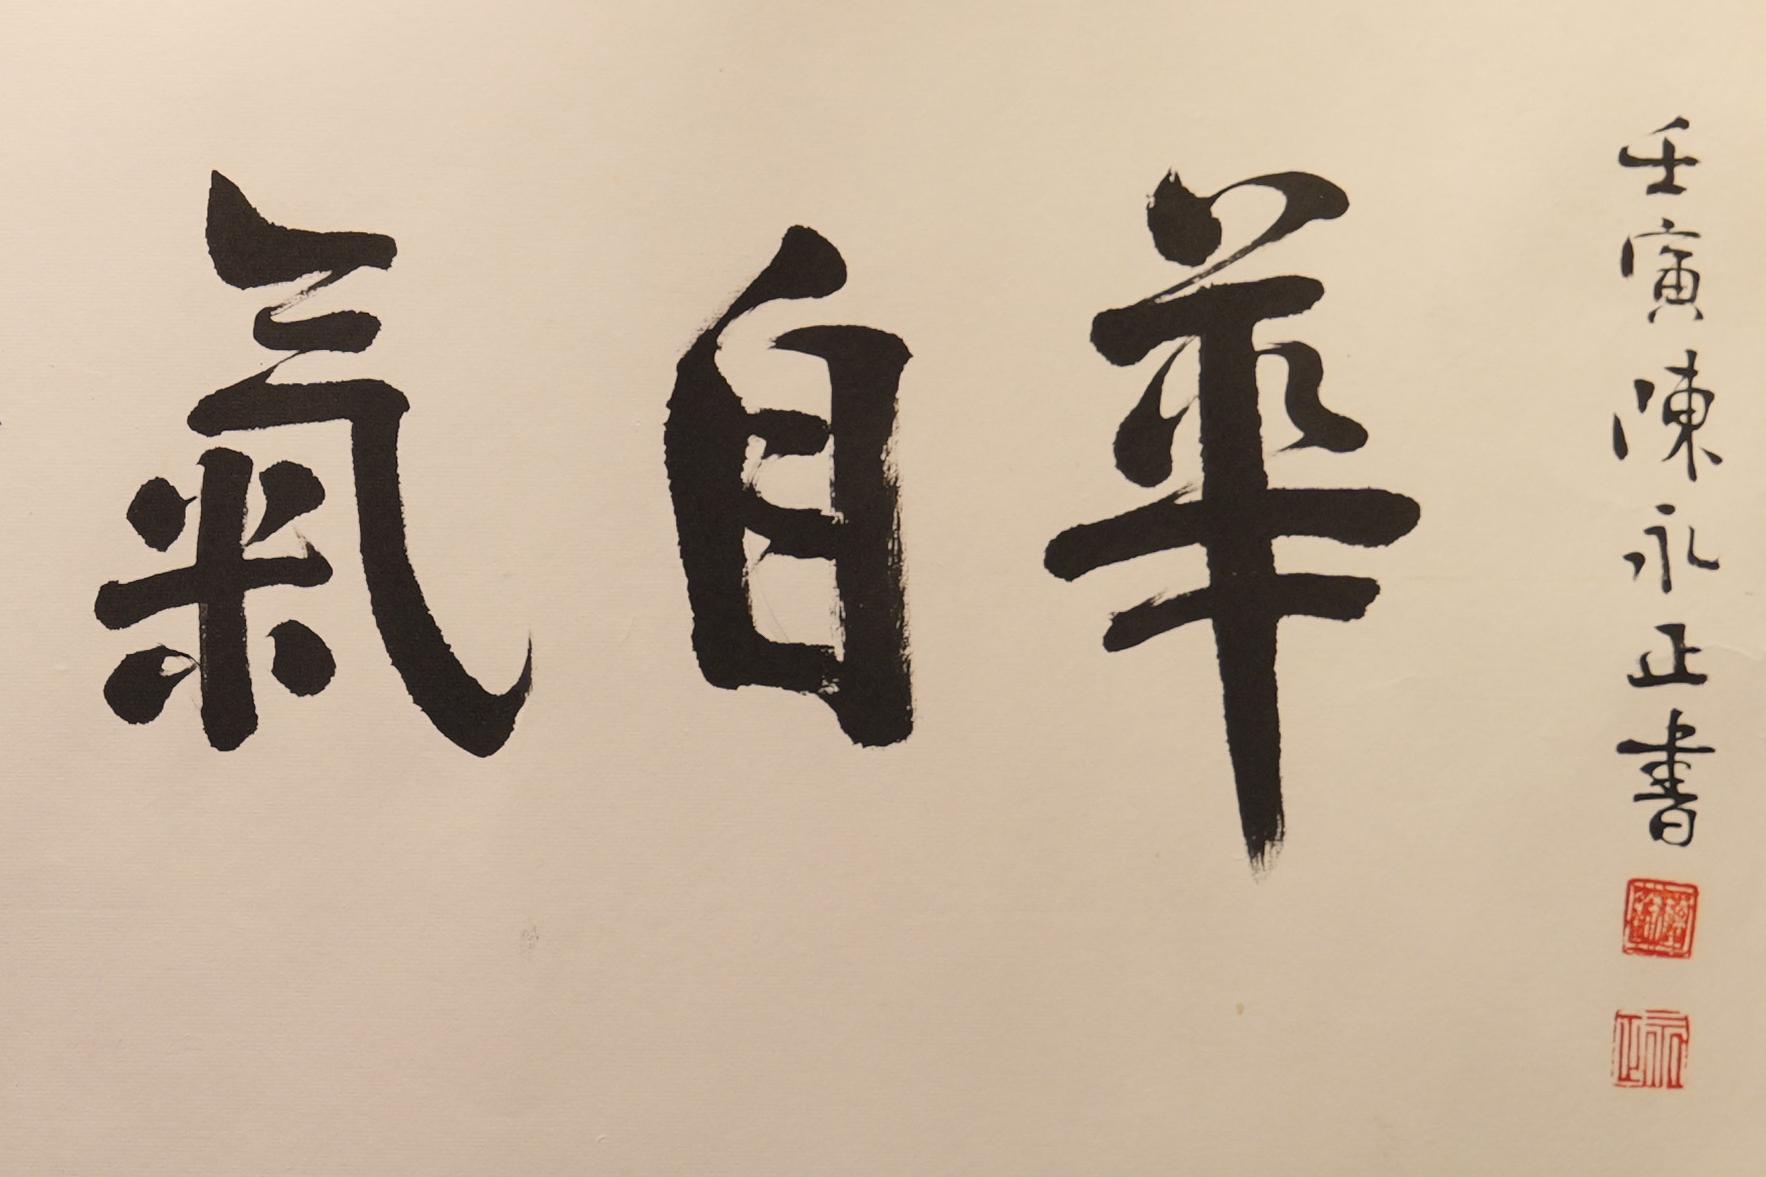 氣自華
壬寅陳永正書
永正